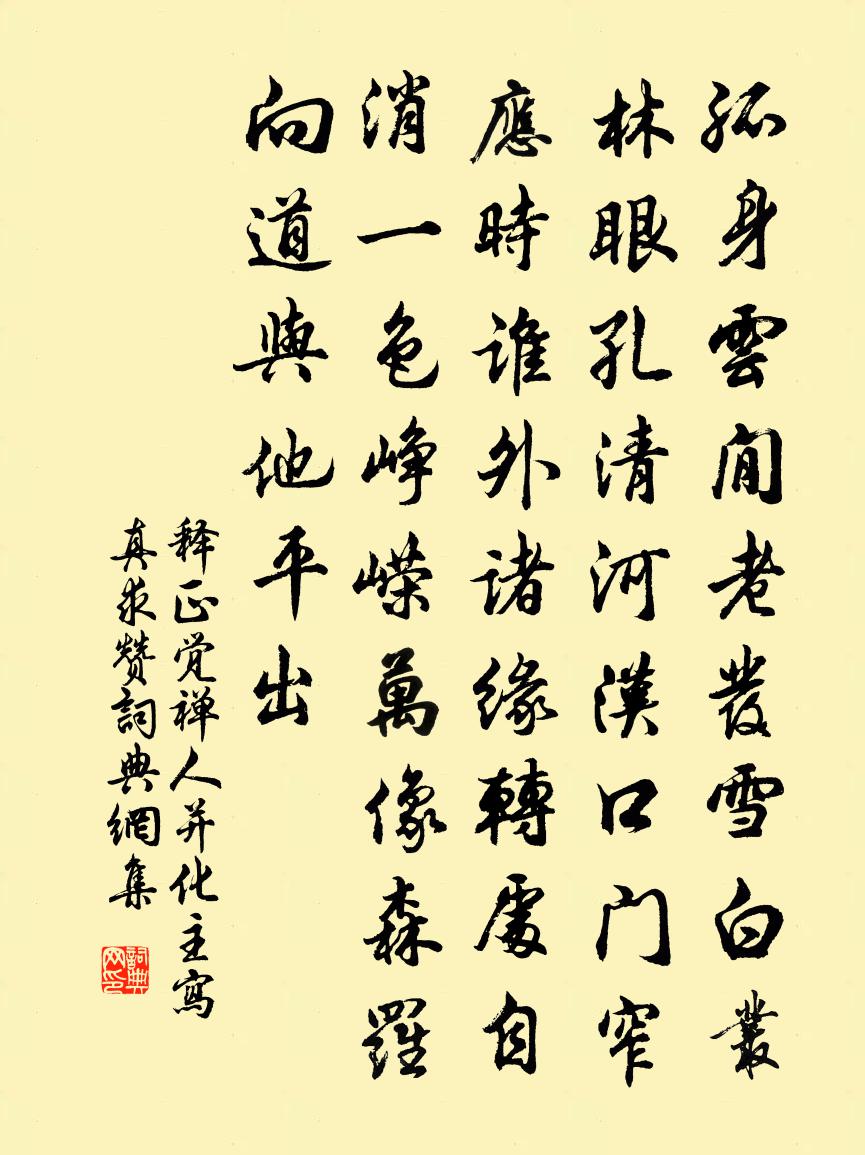 孤身雲閒老發雪白叢
林眼孔清河漢口門窄
應時誰外諸緣轉處自
消一色峥嶸萬像森羅
向道與他平出
释正觉禅人并化主寫
真求赞詞典網集
詞典网印